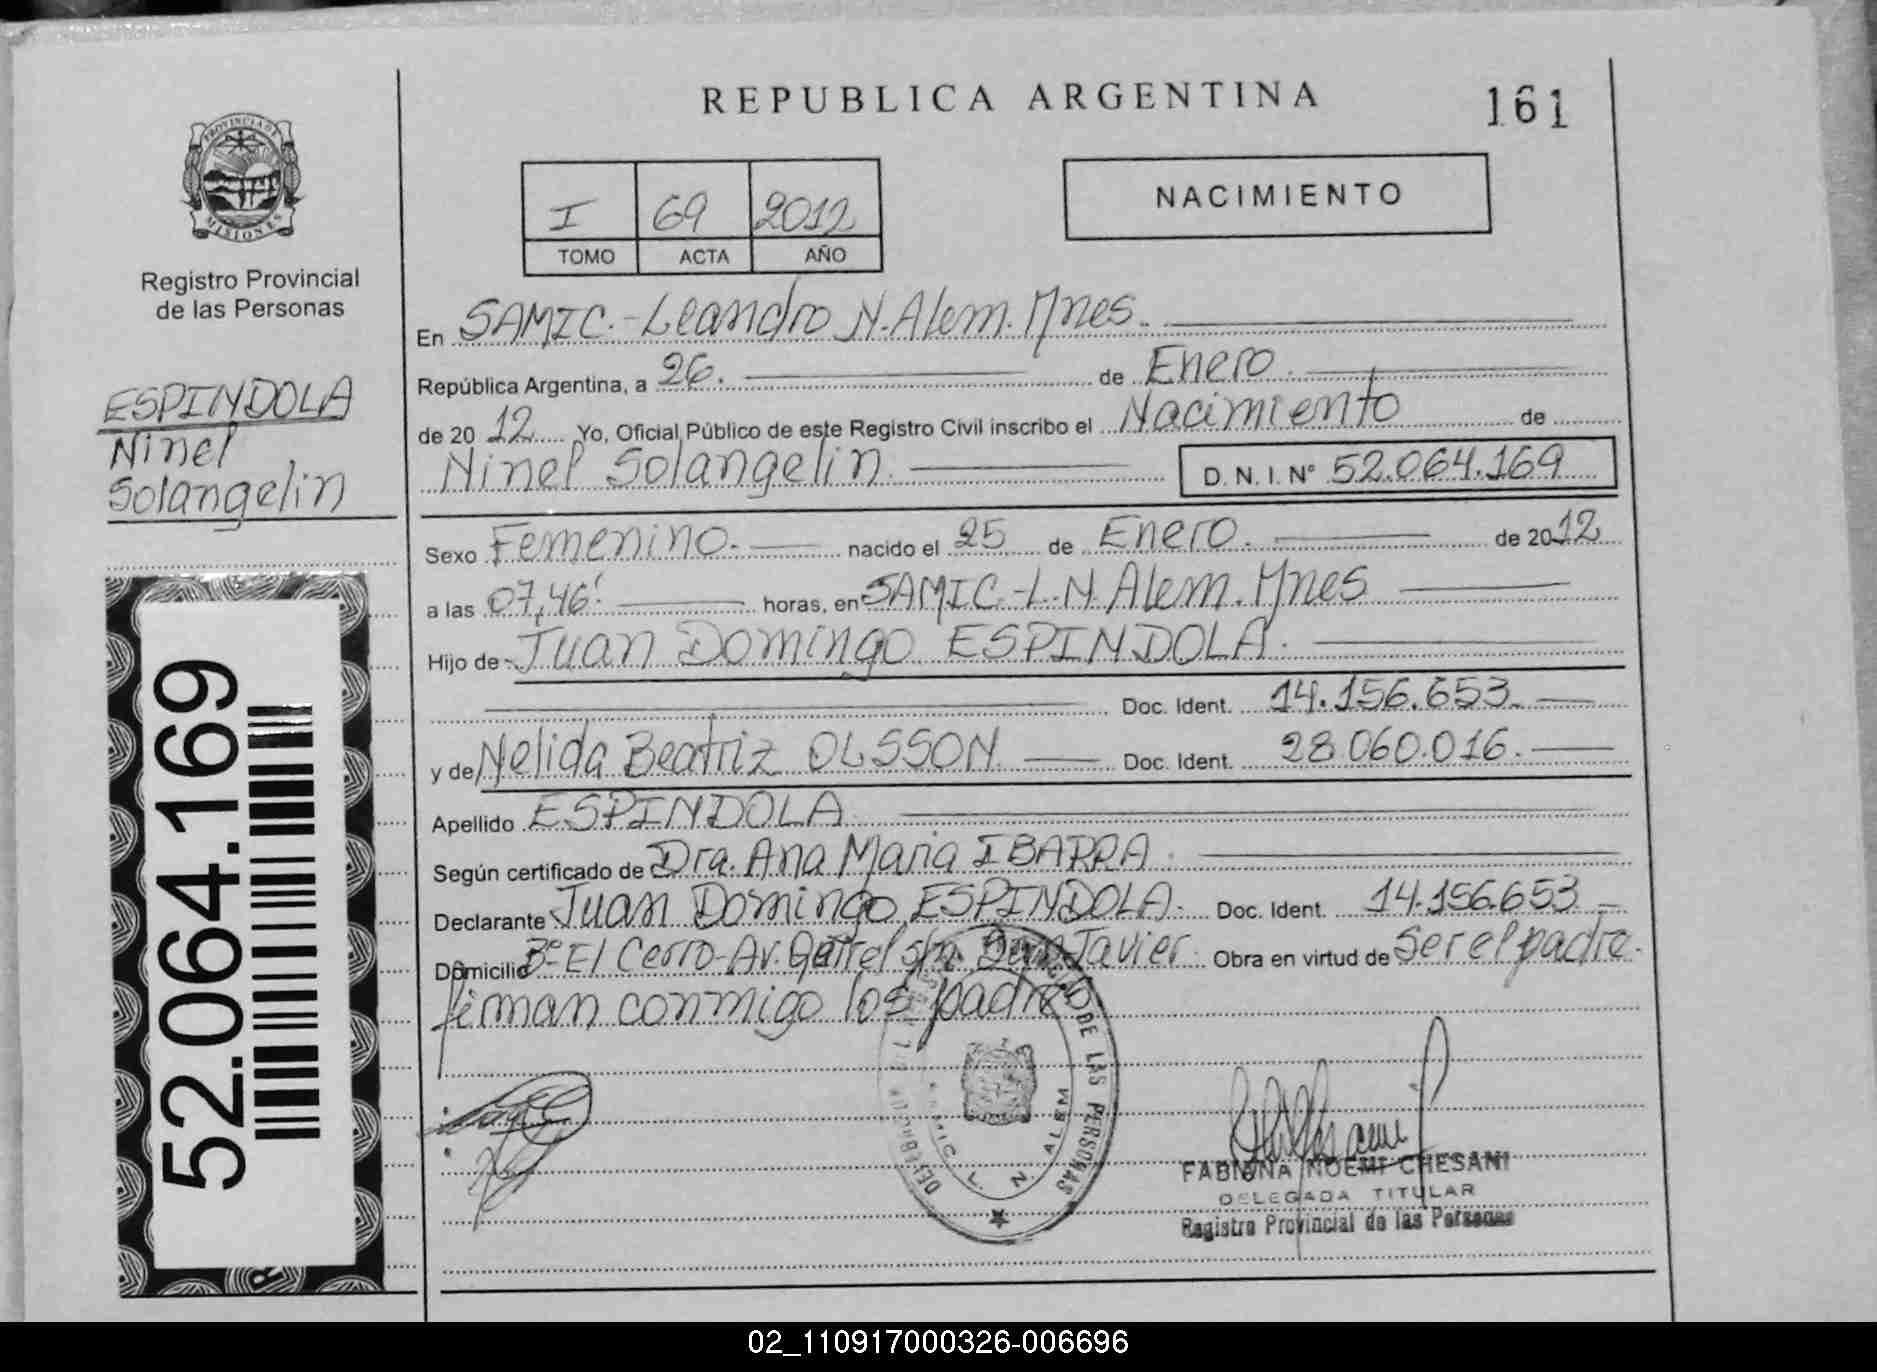 REPUBLICA ARGENTINA
161
PROVINCIA DE
MISIONES
Registro Provincial
de las Personas
I 69 2012
TOMO ACTA AÑO
NACIMIENTO
ESPINDOLA
Ninel
Solangelin
52.064.169
En SAMIC.-Leandro N. Alem. Mnes.
República Argentina, a 26. de Enero.
de 20 12 Yo, Oficial Público de este Registro Civil inscribo el Nacimiento de
Ninel Solangelin. D.N.I. Nº 52.064.169
Sexo Femenino. nacido el 25 de Enero. de 2012
a las 07,46' horas, en SAMIC-L.N. Alem. Mnes
Hijo de Juan Domingo ESPINDOLA.
Doc. Ident. 14.156.653.
y de Nelida Beatriz OLSSON Doc. Ident. 28.060.016.
Apellido ESPINDOLA
Según certificado de Dra. Ana Maria IBARRA.
Declarante Juan Domingo ESPINDOLA. Doc. Ident. 14.156.653
Domicilio Bº El Cerro-Av. s/n Javier. Obra en virtud de Ser el padre.
firman conmigo los padres
DE LAS PERSONAS
SAMIC L. N. ALEM
FABIANA NOEMI CHESANI
DELEGADA TITULAR
Registro Provincial de las Personas
02_110917000326-006696